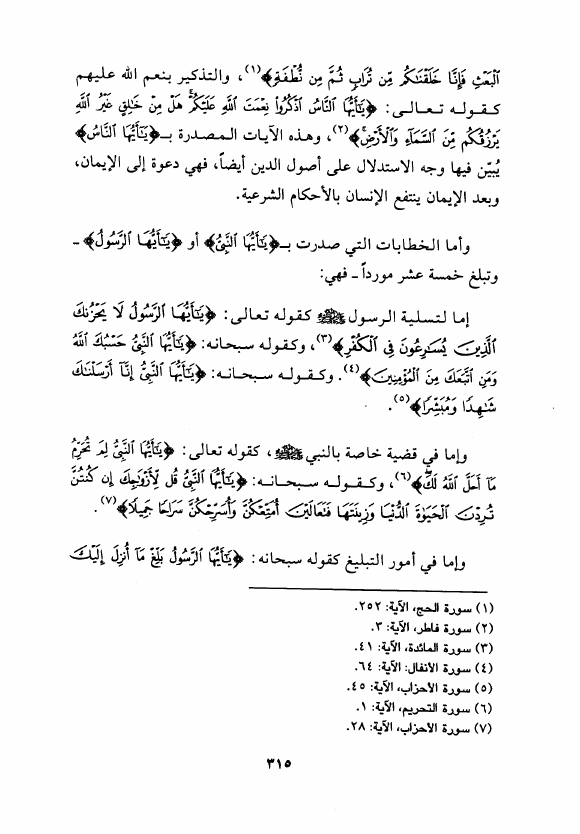 ٱلْبَعْثِ فَإِنَّا خَلَقْنَاكُم مِّن تُرَابٍ ثُمَّ مِن نُّطْفَةٍ﴾(١)، والتذكير بنعم الله عليهم
كـقـولـه تـعـالـى: ﴿يَـٰٓأَيُّهَا ٱلنَّاسُ ٱذْكُرُوا۟ نِعْمَتَ ٱللَّهِ عَلَيْكُمْ هَلْ مِنْ خَـٰلِقٍ غَيْرُ ٱللَّهِ
يَرْزُقُكُم مِّنَ ٱلسَّمَآءِ وَٱلْأَرْضِ﴾(٢)، وهـذه الآيات الـمـصـدرة بـ﴿يَـٰٓأَيُّهَا ٱلنَّاسُ﴾
يُبيّن فيها وجه الاستدلال على أصول الدين أيضاً، فهي دعوة إلى الإيمان،
وبعد الإيمان ينتفع الإنسان بالأحكام الشرعية.
وأما الخطابات التي صدرت بـ﴿يَـٰٓأَيُّهَا ٱلنَّبِىُّ﴾ أو ﴿يَـٰٓأَيُّهَا ٱلرَّسُولُ﴾ ـ
وتبلغ خمسة عشر مورداً ـ فهي:
إما لـتسلية الرسول ﷺ كقوله تعالى: ﴿يَـٰٓأَيُّهَا ٱلرَّسُولُ لَا يَحْزُنكَ
ٱلَّذِينَ يُسَـٰرِعُونَ فِى ٱلْكُفْرِ﴾(٣)، وكقوله سبحانه: ﴿يَـٰٓأَيُّهَا ٱلنَّبِىُّ حَسْبُكَ ٱللَّهُ
وَمَنِ ٱتَّبَعَكَ مِنَ ٱلْمُؤْمِنِينَ﴾(٤). وكـقـولـه سـبـحـانـه: ﴿يَـٰٓأَيُّهَا ٱلنَّبِىُّ إِنَّآ أَرْسَلْنَـٰكَ
شَـٰهِدًا وَمُبَشِّرًا﴾(٥).
وإما في قضية خاصة بالنبي ﷺ، كقوله تعالى: ﴿يَـٰٓأَيُّهَا ٱلنَّبِىُّ لِمَ تُحَرِّمُ
مَآ أَحَلَّ ٱللَّهُ لَكَ﴾(٦)، وكـقـولـه سـبـحـانـه: ﴿يَـٰٓأَيُّهَا ٱلنَّبِىُّ قُل لِّأَزْوَٰجِكَ إِن كُنتُنَّ
تُرِدْنَ ٱلْحَيَوٰةَ ٱلدُّنْيَا وَزِينَتَهَا فَتَعَالَيْنَ أُمَتِّعْكُنَّ وَأُسَرِّحْكُنَّ سَرَاحًا جَمِيلًا﴾(٧).
وإما في أمور التبليغ كقوله سبحانه: ﴿يَـٰٓأَيُّهَا ٱلرَّسُولُ بَلِّغْ مَآ أُنزِلَ إِلَيْكَ
(١) سورة الحج، الآية: ٢٥٢.
(٢) سورة فاطر، الآية: ٣.
(٣) سورة المائدة، الآية: ٤١.
(٤) سورة الأنفال: الآية: ٦٤.
(٥) سورة الأحزاب، الآية: ٤٥.
(٦) سورة التحريم، الآية: ١.
(٧) سورة الأحزاب، الآية: ٢٨.
٣١٥